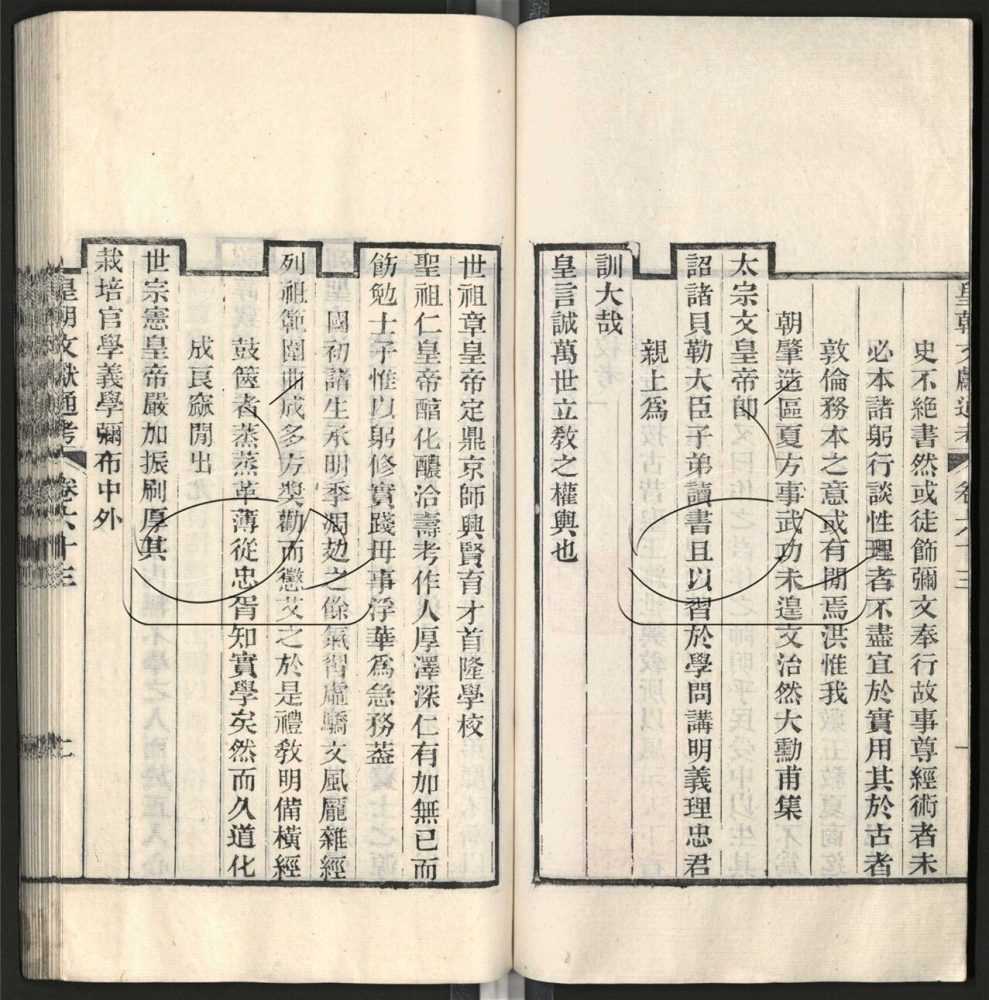 皇朝文獻通考 卷六十三 一
史不絕書然或徒飾彌文奉行故事尊經術者未
必本諸躬行談性理者不盡宜於實用其於古者
敦倫務本之意或有閒焉洪惟我
朝肇造區夏方事武功未遑文治然大勳甫集
太宗文皇帝卽
詔諸貝勒大臣子弟讀書且以習於學問講明義理忠君
親上爲
訓大哉
皇言誠萬世立敎之權輿也
世祖章皇帝定鼎京師興賢育才首隆學校
聖祖仁皇帝醕化醲洽壽考作人厚澤深仁有加無已而
飭勉士子惟以躬修實踐毋事浮華爲急務蓋
國初諸生承明季凋敝之餘氣習虛驕文風龐雜經
列祖範圍曲成多方奬勸而懲艾之於是禮敎明備橫經
鼓篋者蒸蒸革薄從忠胥知實學矣然而久道化
成良窳閒出
世宗憲皇帝嚴加振刷厚其
栽培官學義學彌布中外
皇朝文獻通考 卷六十三